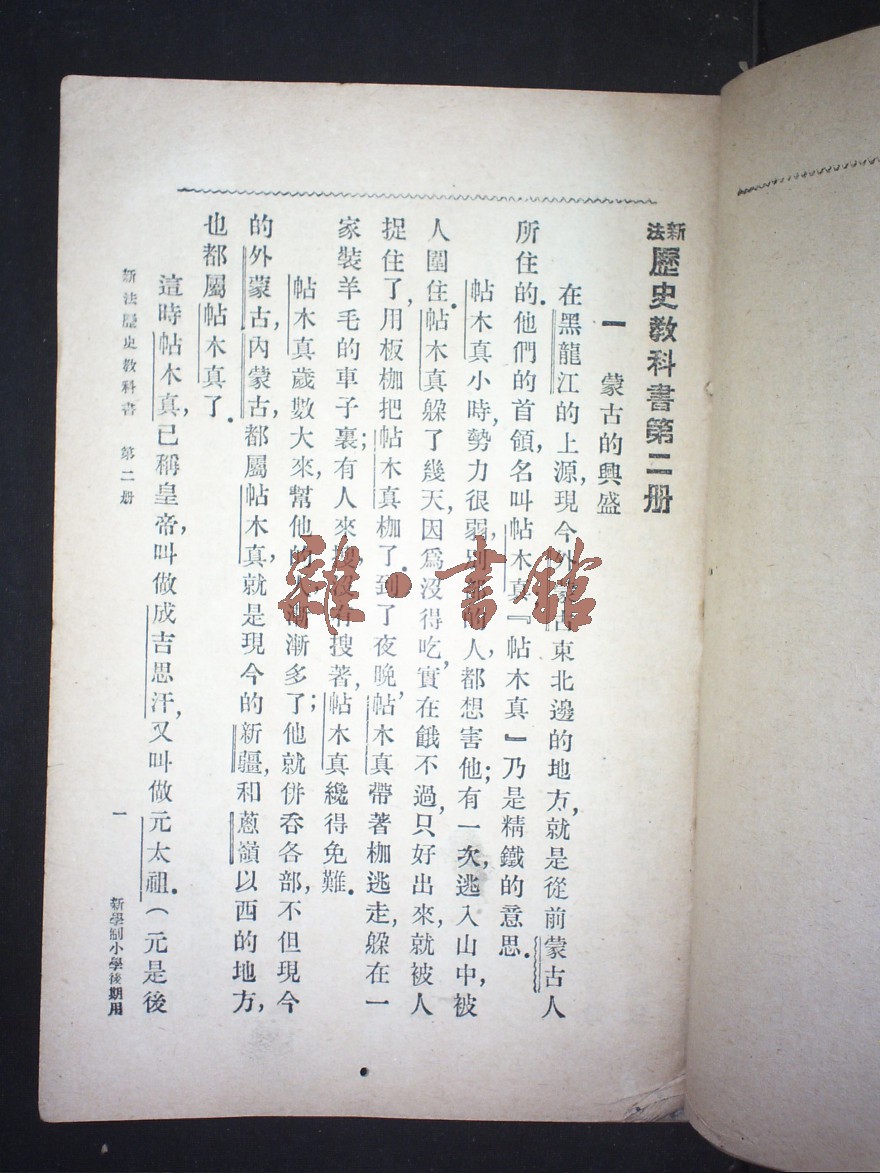 新法歷史教科書第二册
一 蒙古的興盛
在黑龍江的上源,現今外蒙古東北邊的地方,就是從前蒙古人
所住的.他們的首領,名叫帖木真.『帖木真』乃是精鐵的意思.
帖木真小時,勢力很弱,別部的人,都想害他;有一次,逃入山中,被
人圍住.帖木真躲了幾天,因爲沒得吃,實在餓不過,只好出來,就被人
捉住了,用板枷把帖木真枷了.到了夜晚,帖木真帶著枷逃走,躲在一
家裝羊毛的車子裏;有人來搜,沒有搜著,帖木真纔得免難.
帖木真歲數大來,幫他的人漸漸多了;他就併吞各部,不但現今
的外蒙古,內蒙古,都屬帖木真,就是現今的新疆,和蔥嶺以西的地方,
也都屬帖木真了.
這時帖木真,已稱皇帝,叫做成吉思汗,又叫做元太祖.(元是後
新法歷史教科書 第二册
一
新學制小學後期用
雜·書館